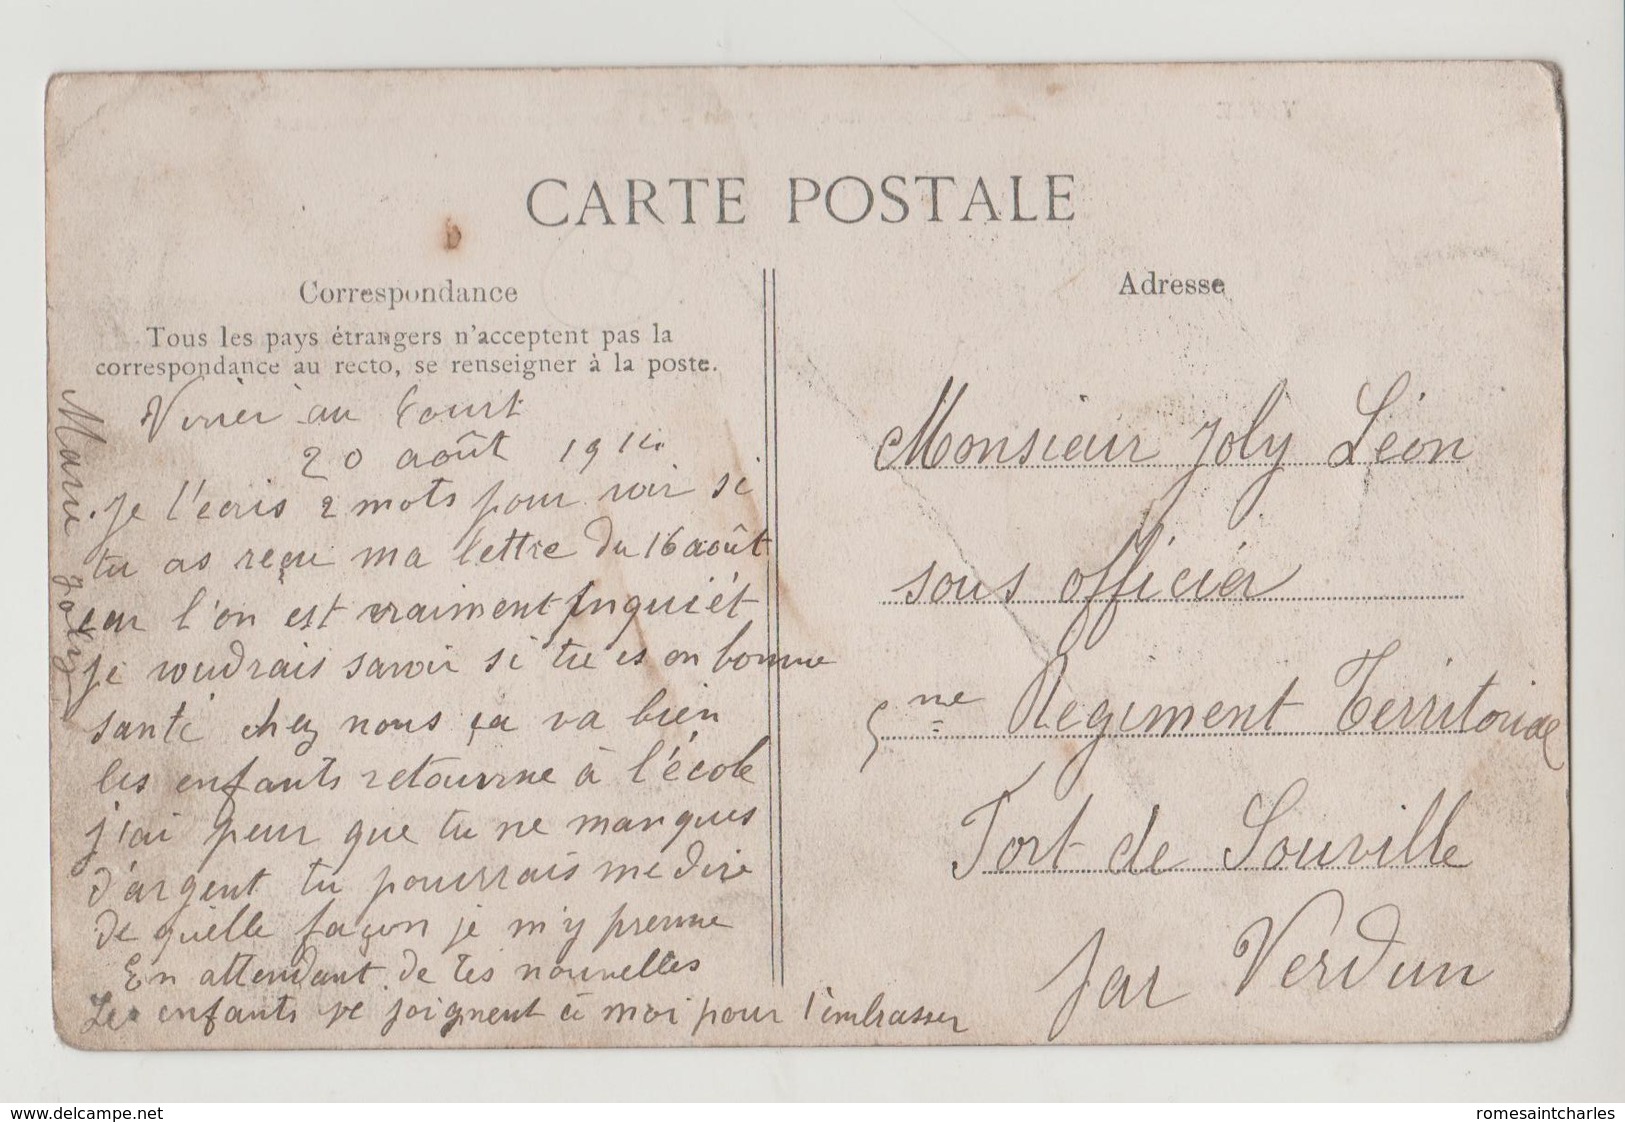 CARTE POSTALE
Correspondance
Tous les pays étrangers n'acceptent pas la
correspondance au recto, se renseigner à la poste.
au Court
20 août 1914
Je t'ecris 2 mots pour voir si
tu as reçu ma lettre du 16 août
car l'on est vraiment Inquiét
je voudrais savoir si tu es en bonne
santé chez nous ça va bien
les enfants retourne à l'école
j'ai peur que tu ne manques
d'argent tu pourrais me dire
de quelle façon je m'y prenne
En attendant de tes nouvelles
Les enfants se joignent à moi pour t'embrasser
Marie Joly
Adresse
Monsieur Joly Léon
sous officier
5me Régiment Territoriale
Fort de Souville
par Verdun
www.delcampe.net
romesaintcharles